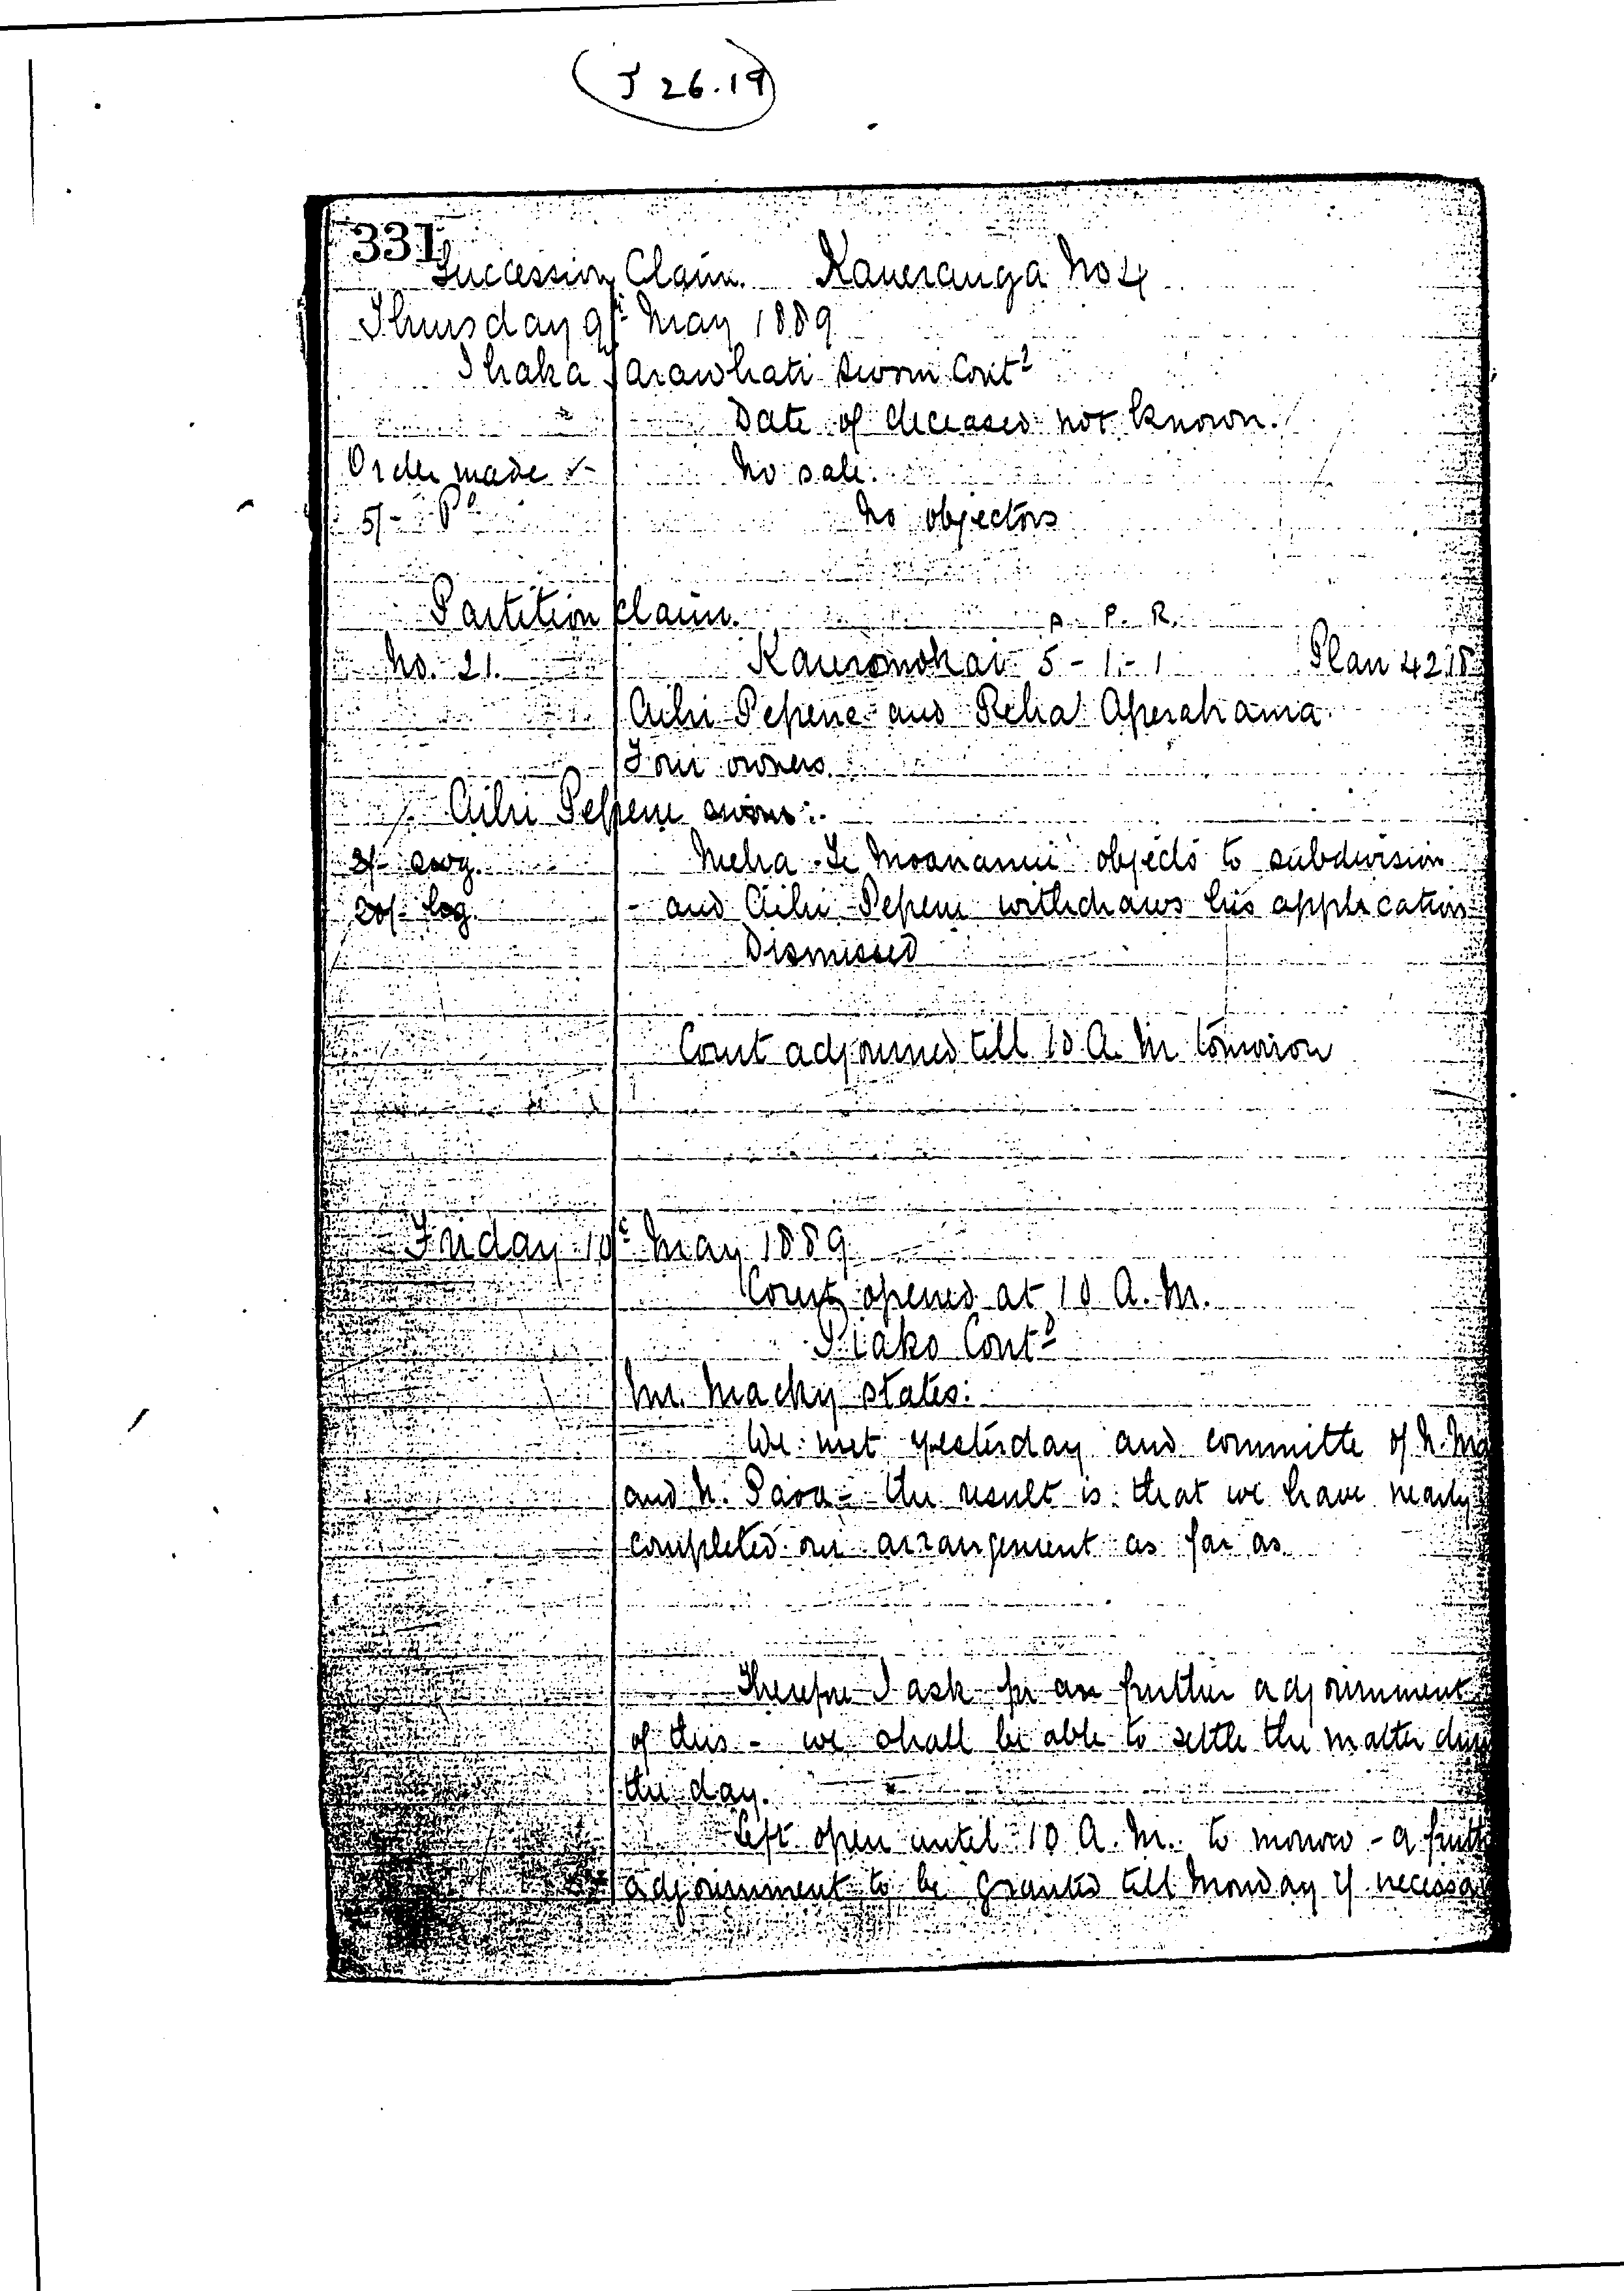 J 26.19
331
Succession Claim. Kaueranga No 4
Thursday 9th May 1889
Ihaka Tarawhati sworn Contd
Date of deceased not known.
Order made No sale.
5/- Pd No objectors
Partition claim.
A. P. R.
No. 21. 5-1-1 Plan 4218
Aihi Pepene and Reha Aperahama
Four owners.
Aihi Pepene sworn:
3/- swg. Meha Te Moananui objects to subdivision
20/- log. - and Aihi Pepene withdraws his application
Dismissed
Court adjourned till 10 A.M. tomorrow
Friday 10th May 1889
Court opened at 10 A.M.
Piako Contd
Mr. Macky states:
We met yesterday and committe of N. Ma
and N. Paoa - the result is that we have nearly
completed our arrangement as far as
Therefore I ask for an further adjournment
of this - we shall be able to settle the matter
the day.
Left open until 10 A.M. to morrow - a furth
adjournment to be granted till Monday if necessa